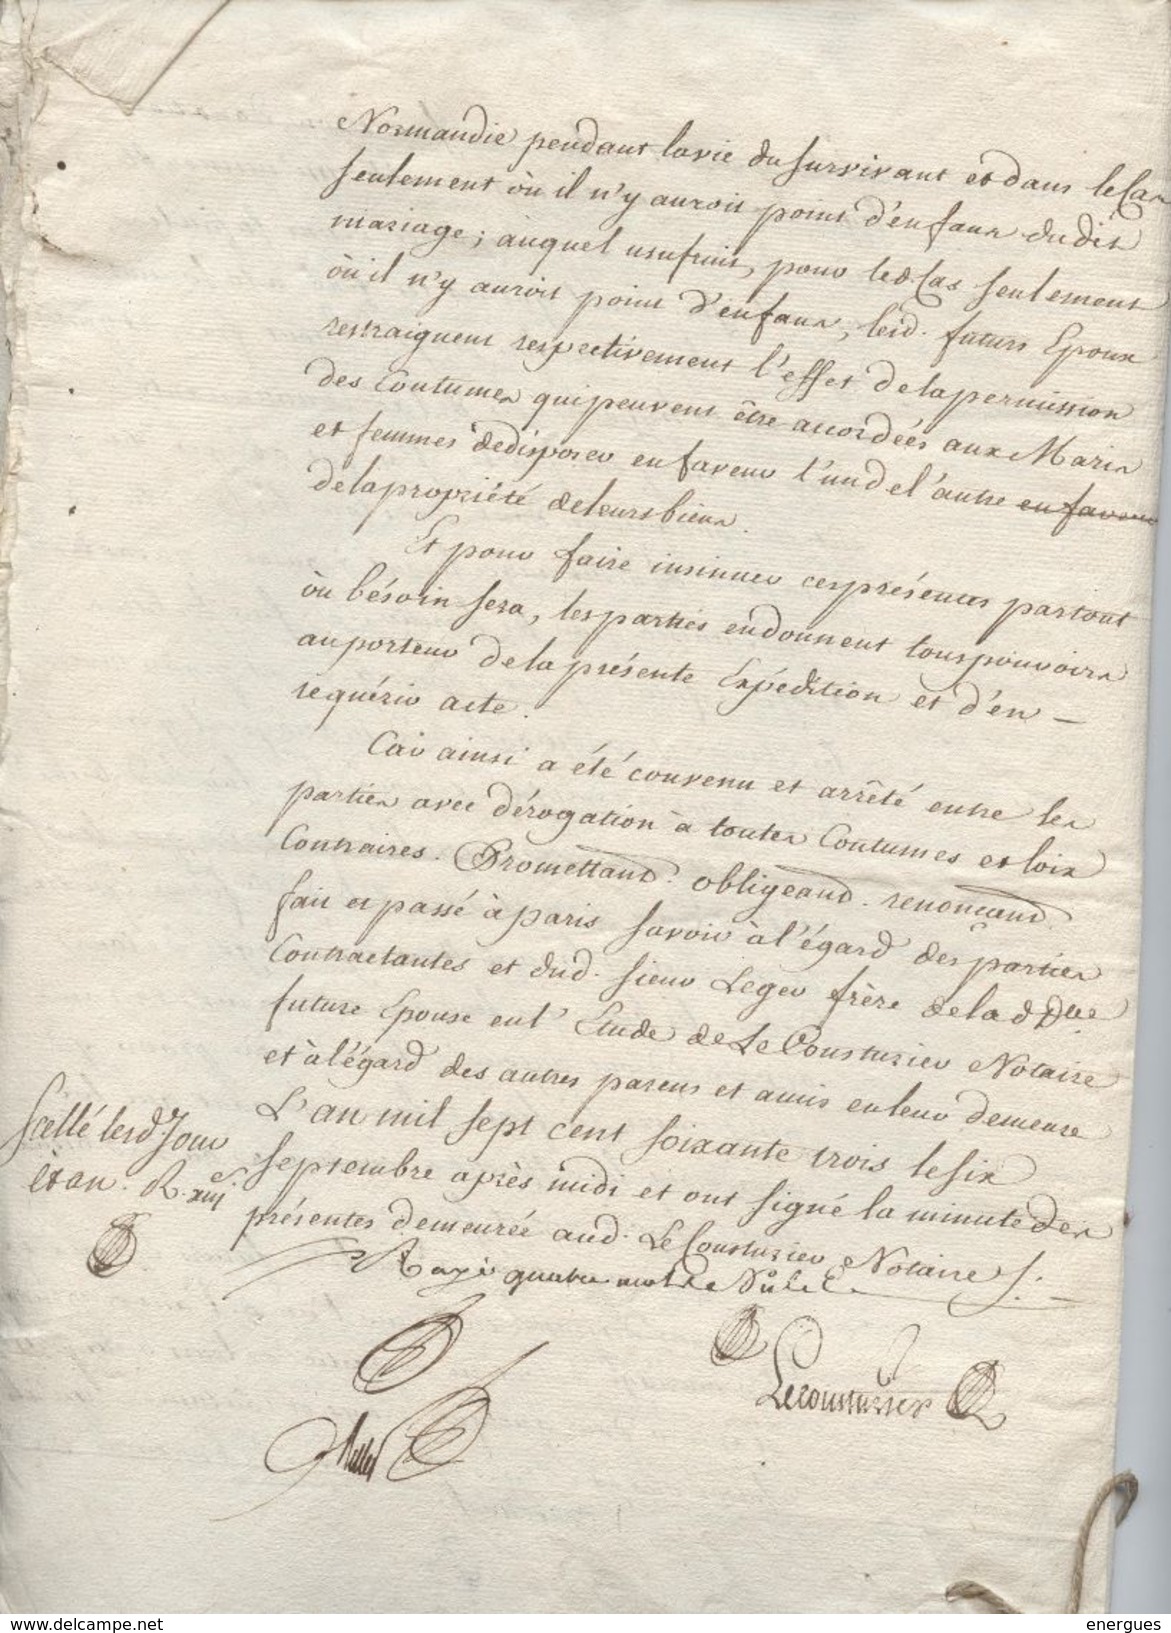 Normandie pendant la vie du survivant et dans le Cas
seulement où il n'y auroit point d'enfans du dit
mariage ; auquel usufruit, pour led. Cas seulement
où il n'y auroit point d'enfans, lesd. futurs Epoux
restraignent respectivement l'effet de la permission
des Coutumes qui peuvent être accordées aux Maris
et femmes de disposer en faveur l'un de l'autre en faveur
de la propriété de leurs biens.
Et pour faire insinuer ces présentes partout
où bésoin sera, les parties en donnent tous pouvoirs
au porteur de la présente Expédition et d'en —
requérir acte.
Car ainsi a été convenu et arrêté entre les
parties avec dérogation à toutes Coutumes et loix
Contraires. Promettant. obligeand. renonceand.
fait et passé à paris savoir à l'égard des parties
Contractantes et dud. sieur Leger frère de lad. Dlle
future Epouse en l'Etude de Le Cousturier Notaire
et à l'égard des autres parens et amis en leur demeure
L'an mil sept cent soixante trois le six
septembre après midi et ont signé la minute des
présentes demeurée aud. Le Cousturier Notaire /.
Rayé quatre mots Nuls
Scellé lesd. Jour
et an. R. xiij s
Lecousturier
energues